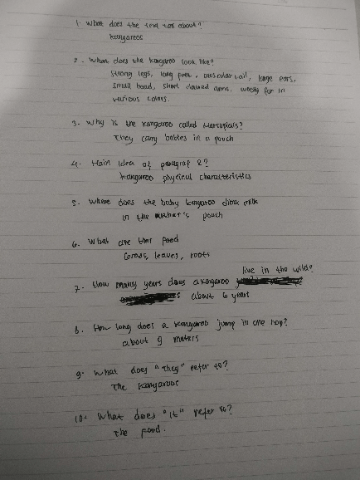 1. What does the text tell about?
Kangaroos
2. What does the kangaroo look like?
Strong legs, long feet, muscular tail, large ears,
small head, short clawed arms. woolly fur in
various colors.
3. Why is the kangaroo called Marsupials?
They carry babies in a pouch
4. Main idea of paragraf 2?
Kangaroo physical characteristics
5. Where does the baby kangaroo drink milk
in the mother's pouch
6. What are their food
Grass, leaves, roots
7. How many years does a kangaroo live in the wild?
about 6 years
8. How long does a kangaroo jump in one hop?
about 9 meters
9. What does "They" refer to?
The kangaroos
10. What does "it" refer to?
The food.